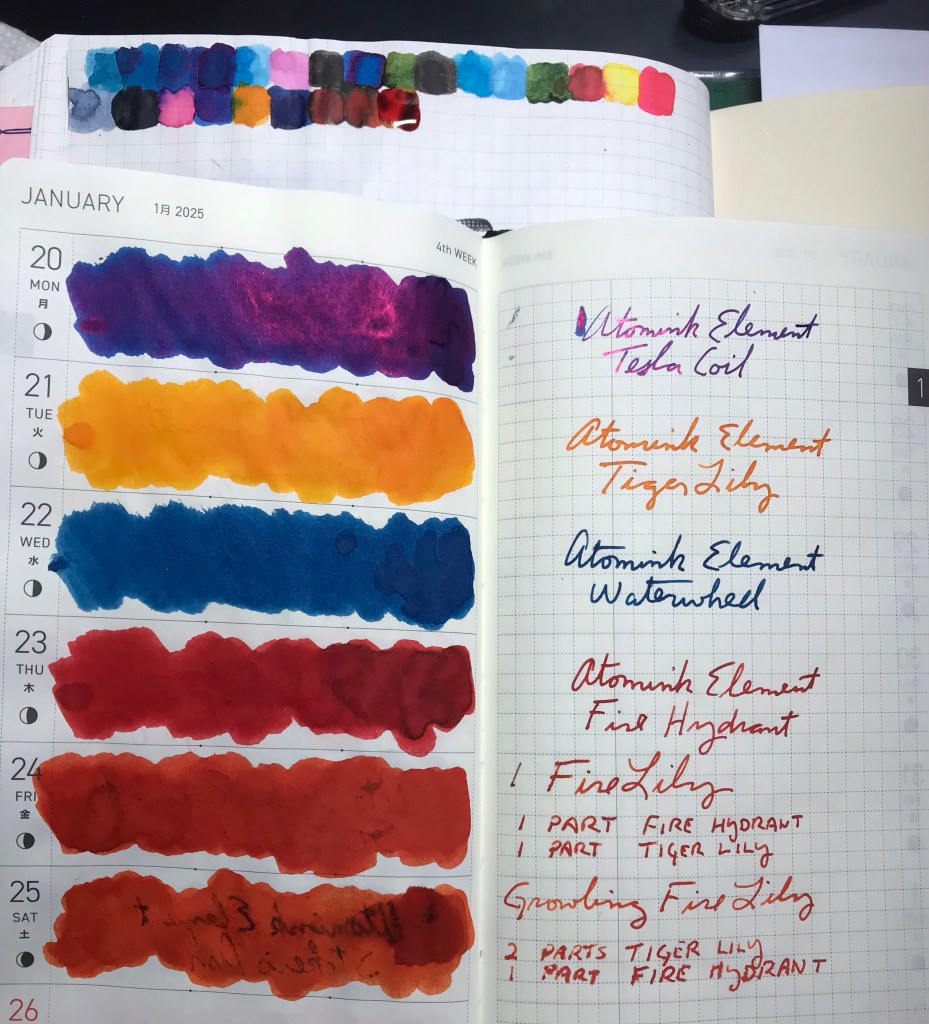 JANUARY 1月 2025
4th WEEK
20
MON
月
21
TUE
火
22
WED
水
23
THU
木
24
FRI
金
25
SAT
土
26
Atomink Element
Tesla Coil
1
Atomink Element
Tiger Lily
Atomink Element
Waterwheel
Atomink Element
Fire Hydrant
1 Fire Lily
1 PART FIRE HYDRANT
1 PART TIGER LILY
Growling Fire Lily
2 PARTS TIGER LILY
1 PART FIRE HYDRANT